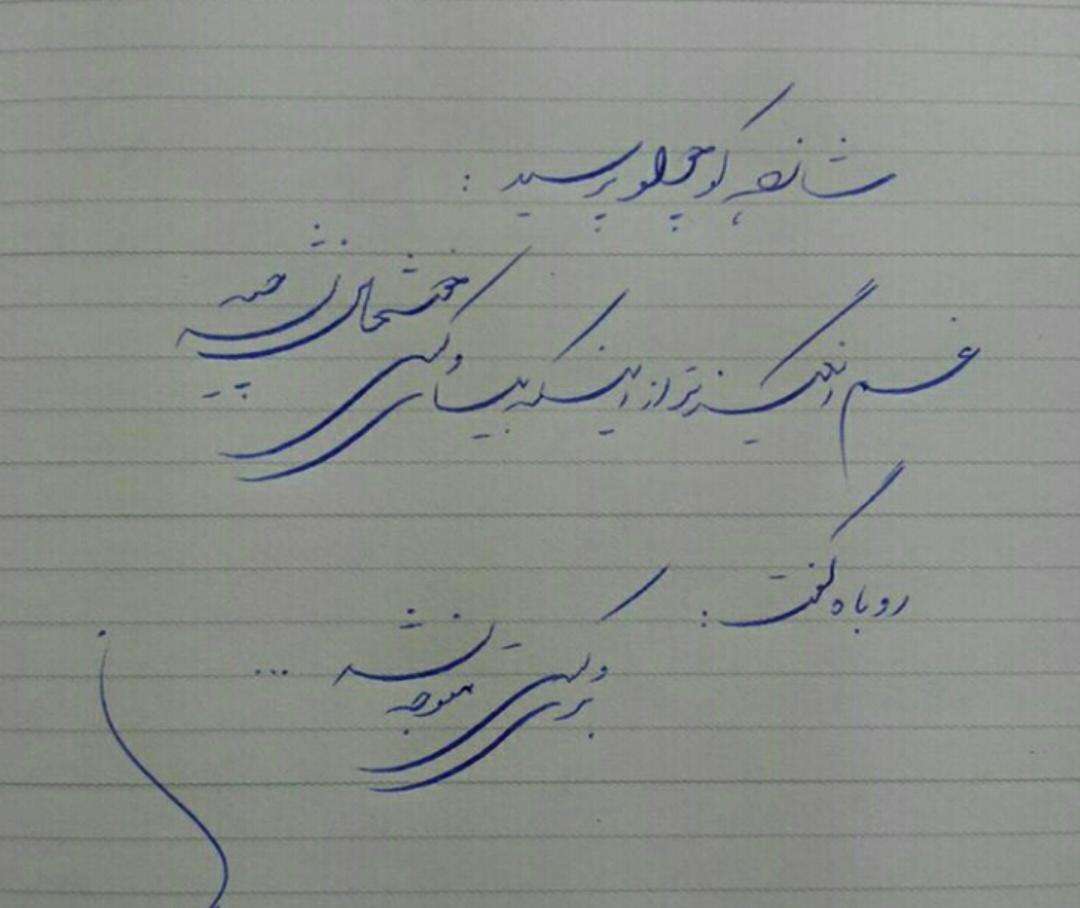 شازده کوچولو پرسید :
غم انگیز تر از اینکه بیای و کسی خوشحال نشه چیه
روباه گفت :
بری و کسی متوجه نشه ...